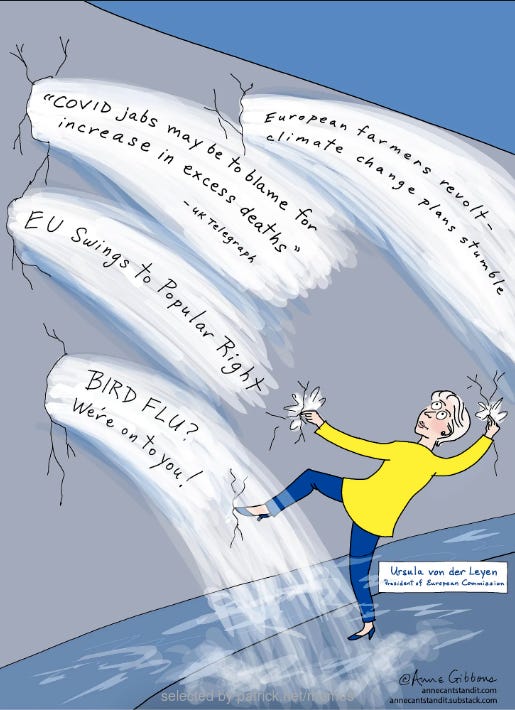 "COVID jabs may be to blame for
increase in excess deaths"
- UK Telegraph
European farmers revolt -
climate change plans stumble
EU Swings to Popular Right
BIRD FLU?
We're on to you!
Ursula von der Leyen
President of European Commission
@Anne Gibbons
annecantstandit.com
annecantstandit.substack.com
selected by patrick.net/memes